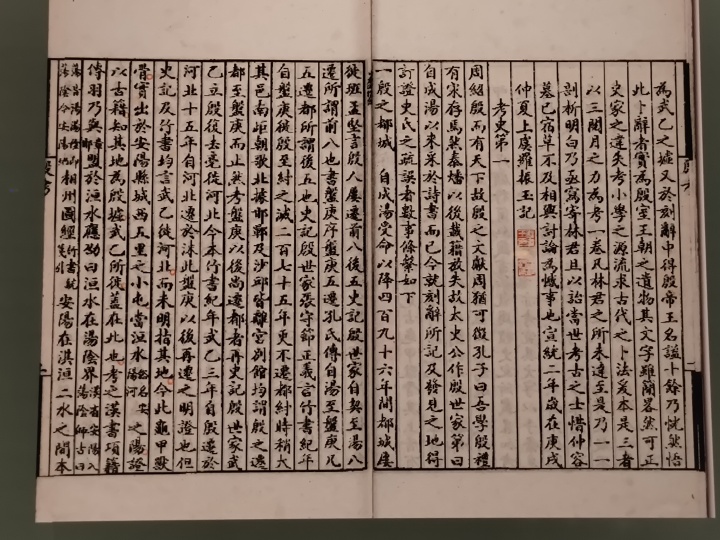 為武乙之墟又於刻辭中得殷帝王名諡十餘乃恍然悟
此卜辭者實為殷室王朝之遺物其文字雖簡略然可正
史家之違失考小學之源流求古代之卜法爰本是三者
以三閱月之力為考一卷凡林君之所未達至是乃一一
剖析明白乃亟寫寄林君且以詒當世考古之士惜仲容
墓已宿草不及相與討論為憾事也宣統二年歲在庚戌
仲夏上虞羅振玉記
考史第一
周紹殷而有天下故殷之文獻周猶可徵孔子曰吾學殷禮
有宋存焉然秦燔以後載籍放失故太史公作殷世家第曰
自成湯以來采於詩書而已今就刻辭所記及發見之地得
訂證史氏之疏誤者數事條繫如下
一殷之都城 自成湯受命以降四百九十六年間都城屢
徙班孟堅言殷人屢遷前八後五史記殷世家自契至湯八
遷所謂前八也書盤庚序盤庚五遷孔氏傳自湯至盤庚凡
五遷都所謂後五也史記殷世家張守節正義言竹書紀年
自盤庚徙殷至紂之滅二百七十五年更不遷都紂時稍大
其邑南距朝歌北據邯鄲及沙邱皆離宮別館均謂殷之遷
都至盤庚而止然考盤庚以後尚遷都者再史記殷世家武
乙立殷復去亳徙河北今本竹書紀年武乙三年自殷遷於
河北十五年自河北遷於沬此盤庚以後再遷之明證也但
史記及竹書均言武乙徙河北而未明指其地今此龜甲獸
骨實出於安陽縣城西五里之小屯當洹水俗名安陽河之陽證
以古籍知其地為殷墟武乙所徙蓋在此也考之漢書項籍
傳羽乃與邯盟於洹水應劭曰洹水在湯陰界漢省安陽入蕩陰師古曰
蕩陰今安陽地相州圖經安陽在淇洹二水之間本